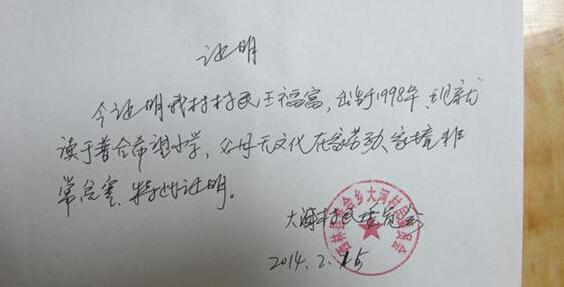 证明
今证明我村村民王福富,出生于1998年、现就
读于普合希望小学,父母无文化在家劳动、家境非
常危害、特此证明。
大河村民委员会
西林县普合乡大河村民委员会
2014.2.15